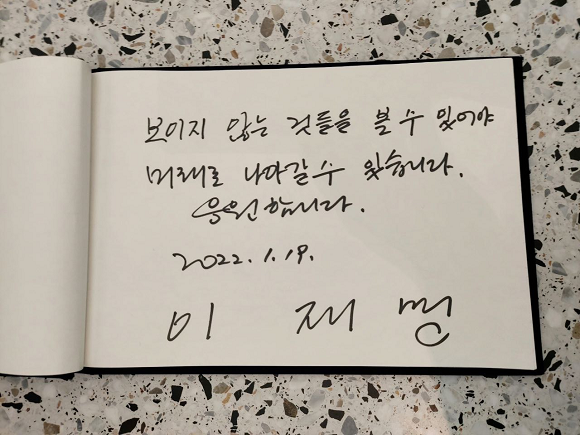 보이지 않는 것들을 볼 수 있어야
미래로 나아갈 수 있습니다.
응원합니다.
2022. 1. 19.
이 재 명